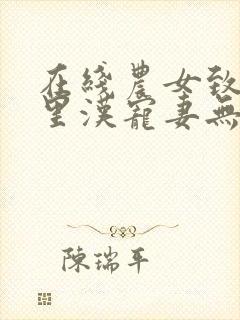 在綫農女致
里漢寵妻無
陳瑞平